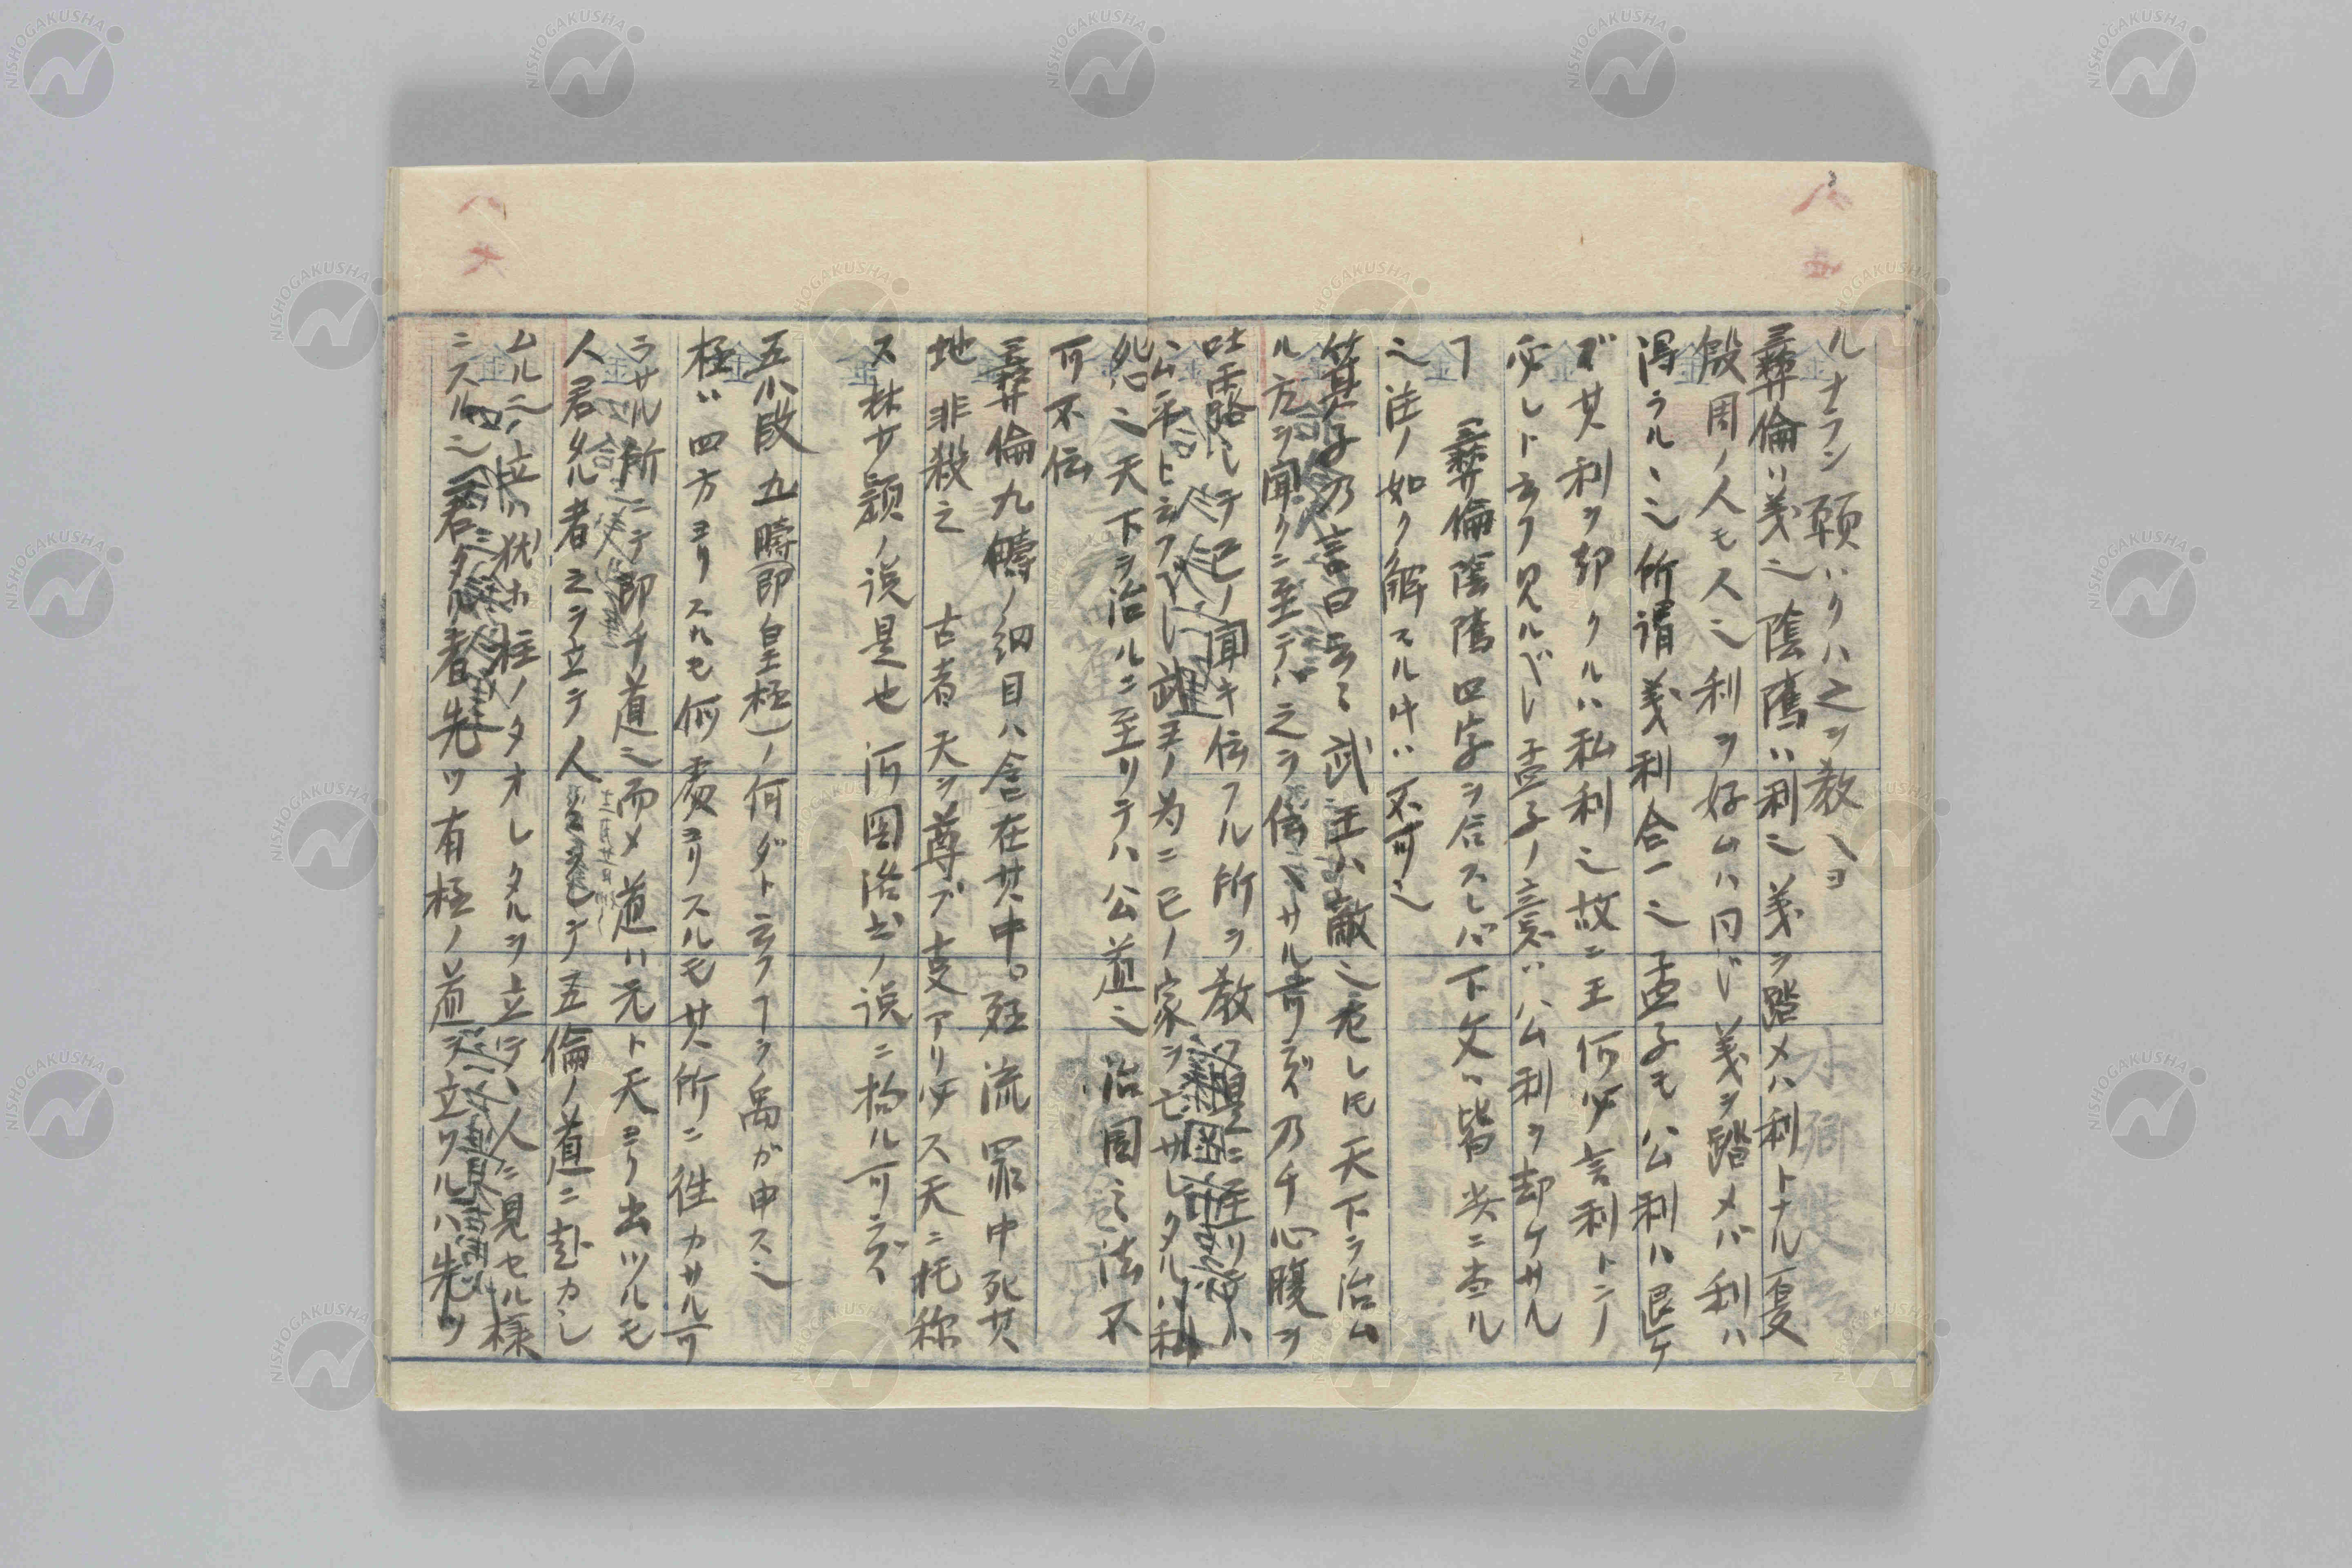 ルナラン願ハクハ之ヲ教ヘヨ
彝倫ハ義也陰隲ハ利也義ヲ踏メハ利トナル夏
殷周ノ人モ人也利ヲ好ムハ同ジ義ヲ踏メバ利ハ
得ラル、也所謂義利合一也孟子モ公利ハ退ケ
ズ其利ヲ却クルハ私利也故ニ王何必言利トニノ
必レト云フ見ルベし孟子ノ意ハ公利ヲ却ケサル
ヿ彝倫陰隲四字ヲ合スレバ下文ハ皆共ニ書ル
也注ノ如ク解スル片ハ不可也
箕子乃言曰云々武王ハ敵也危し圧天下ラ治ム
ル方ヲ聞クニ至テハ之ラ傳ヘサル可ラズ乃チ心腹ヲ
吐露しテ己ノ聞キ伝フル所ヲ教
公平ト云フべし武王ノ為ニ己ノ家ヲ亡サレタルハ私
怨也天下ヲ治ルニ至リテハ公道也治国之法不
可不伝
彝倫九疇ノ細目ハ含在其中。殛流罪中死其
地非殺之古者天ヲ尊ブ専アリ必ス天ニ托称
ス林サ穎ノ説是也河図洛書ノ説ニ拘ル可ラズ
五小段九疇(即皇極)ノ何ダト云フヿヲ禹が申ス也
極ハ四方ヨリスルモ何處ヨリスルモ其所ニ往カサル可
ラサル所ニテ即チ道也而〆道ハ元ト天ヨリ出ツルモ
人君タル者之ヲ立テ人シテ五倫ノ道ニ赴カし
ムルニ立ハ猶ホ柱ノタオレタルヲ立テ人ニ見セル様
ニスル也君タル者先ツ有極ノ道ヲ立ツルハ先ツ